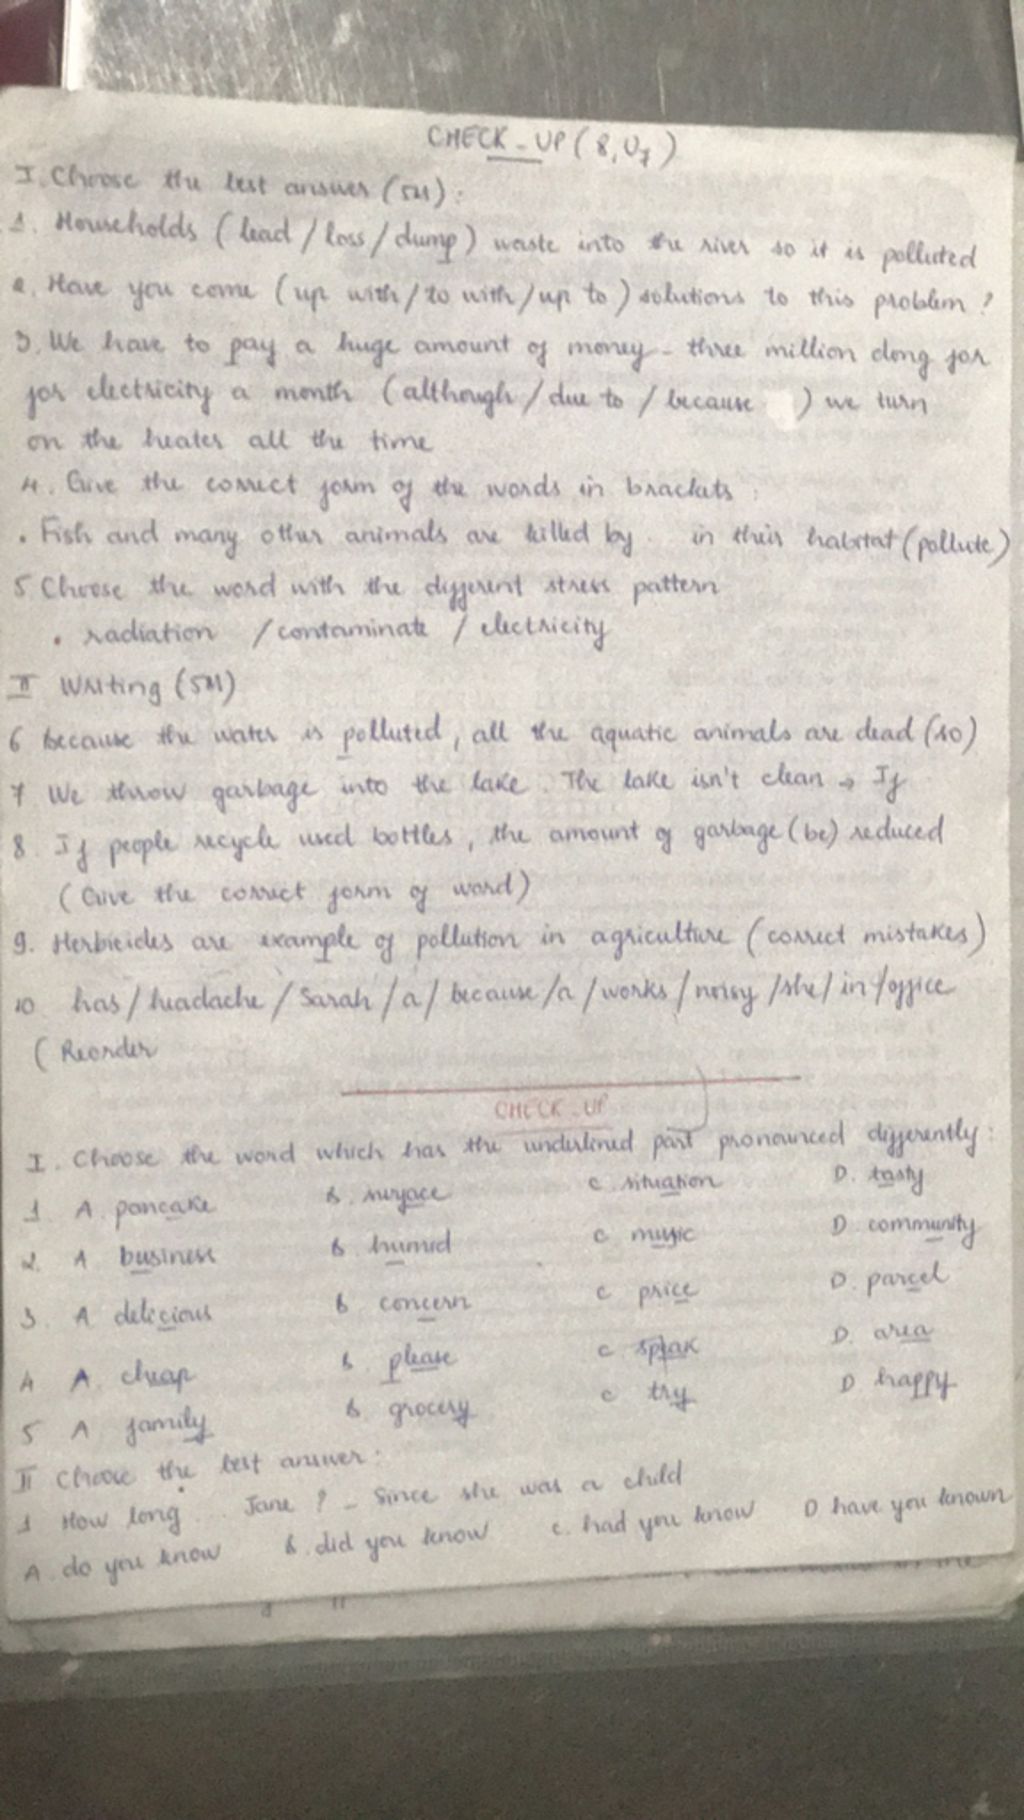 CHECK-UP (8, U7)
I. Choose the best answer (5M):
1. Households (lead / loss / dump) waste into the river so it is polluted
2. Have you come (up with / to with / up to) solutions to this problem?
3. We have to pay a huge amount of money - three million dong for
for electricity a month (although / due to / because ) we turn
on the heater all the time
4. Give the correct form of the words in brackets:
. Fish and many other animals are killed by in their habitat (pollute)
5 Choose the word with the different stress pattern
. radiation / contaminate / electricity
II Writing (5M)
6 Because the water is polluted, all the aquatic animals are dead (so)
7 We throw garbage into the lake. The lake isn't clean → If
8. If people recycle used bottles, the amount of garbage (be) reduced
(Give the correct form of word)
9. Herbicides are example of pollution in agriculture (correct mistakes)
10 has / headache / Sarah / a / because / a / works / noisy / she / in / office
(Reorder
CHECK-UP
I. Choose the word which has the underlined part pronounced differently:
1 A. pancake B. surface C. situation D. tasty
2. A business B humid C music D. community
3. A delicious B concern C price D. parcel
4 A. cheap B. please C. speak D. area
5 A family B grocery C try D happy
II Choose the best answer:
1 How long .. Jane? - Since she was a child
A. do you know B. did you know C. had you know D have you known